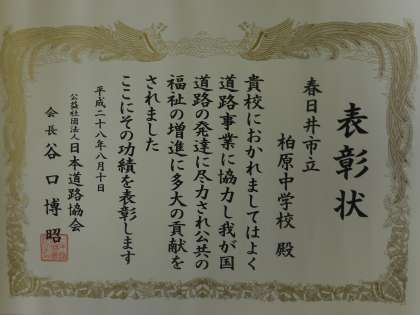 表彰状
春日井市立
柏原中学校 殿
貴校におかれましてはよく
道路事業に協力し我が国
道路の発達に尽力され公共の
福祉の増進に多大の貢献を
されました
ここにその功績を表彰します
平成二十八年八月十日
公益社団法人日本道路協会
会長 谷口博昭